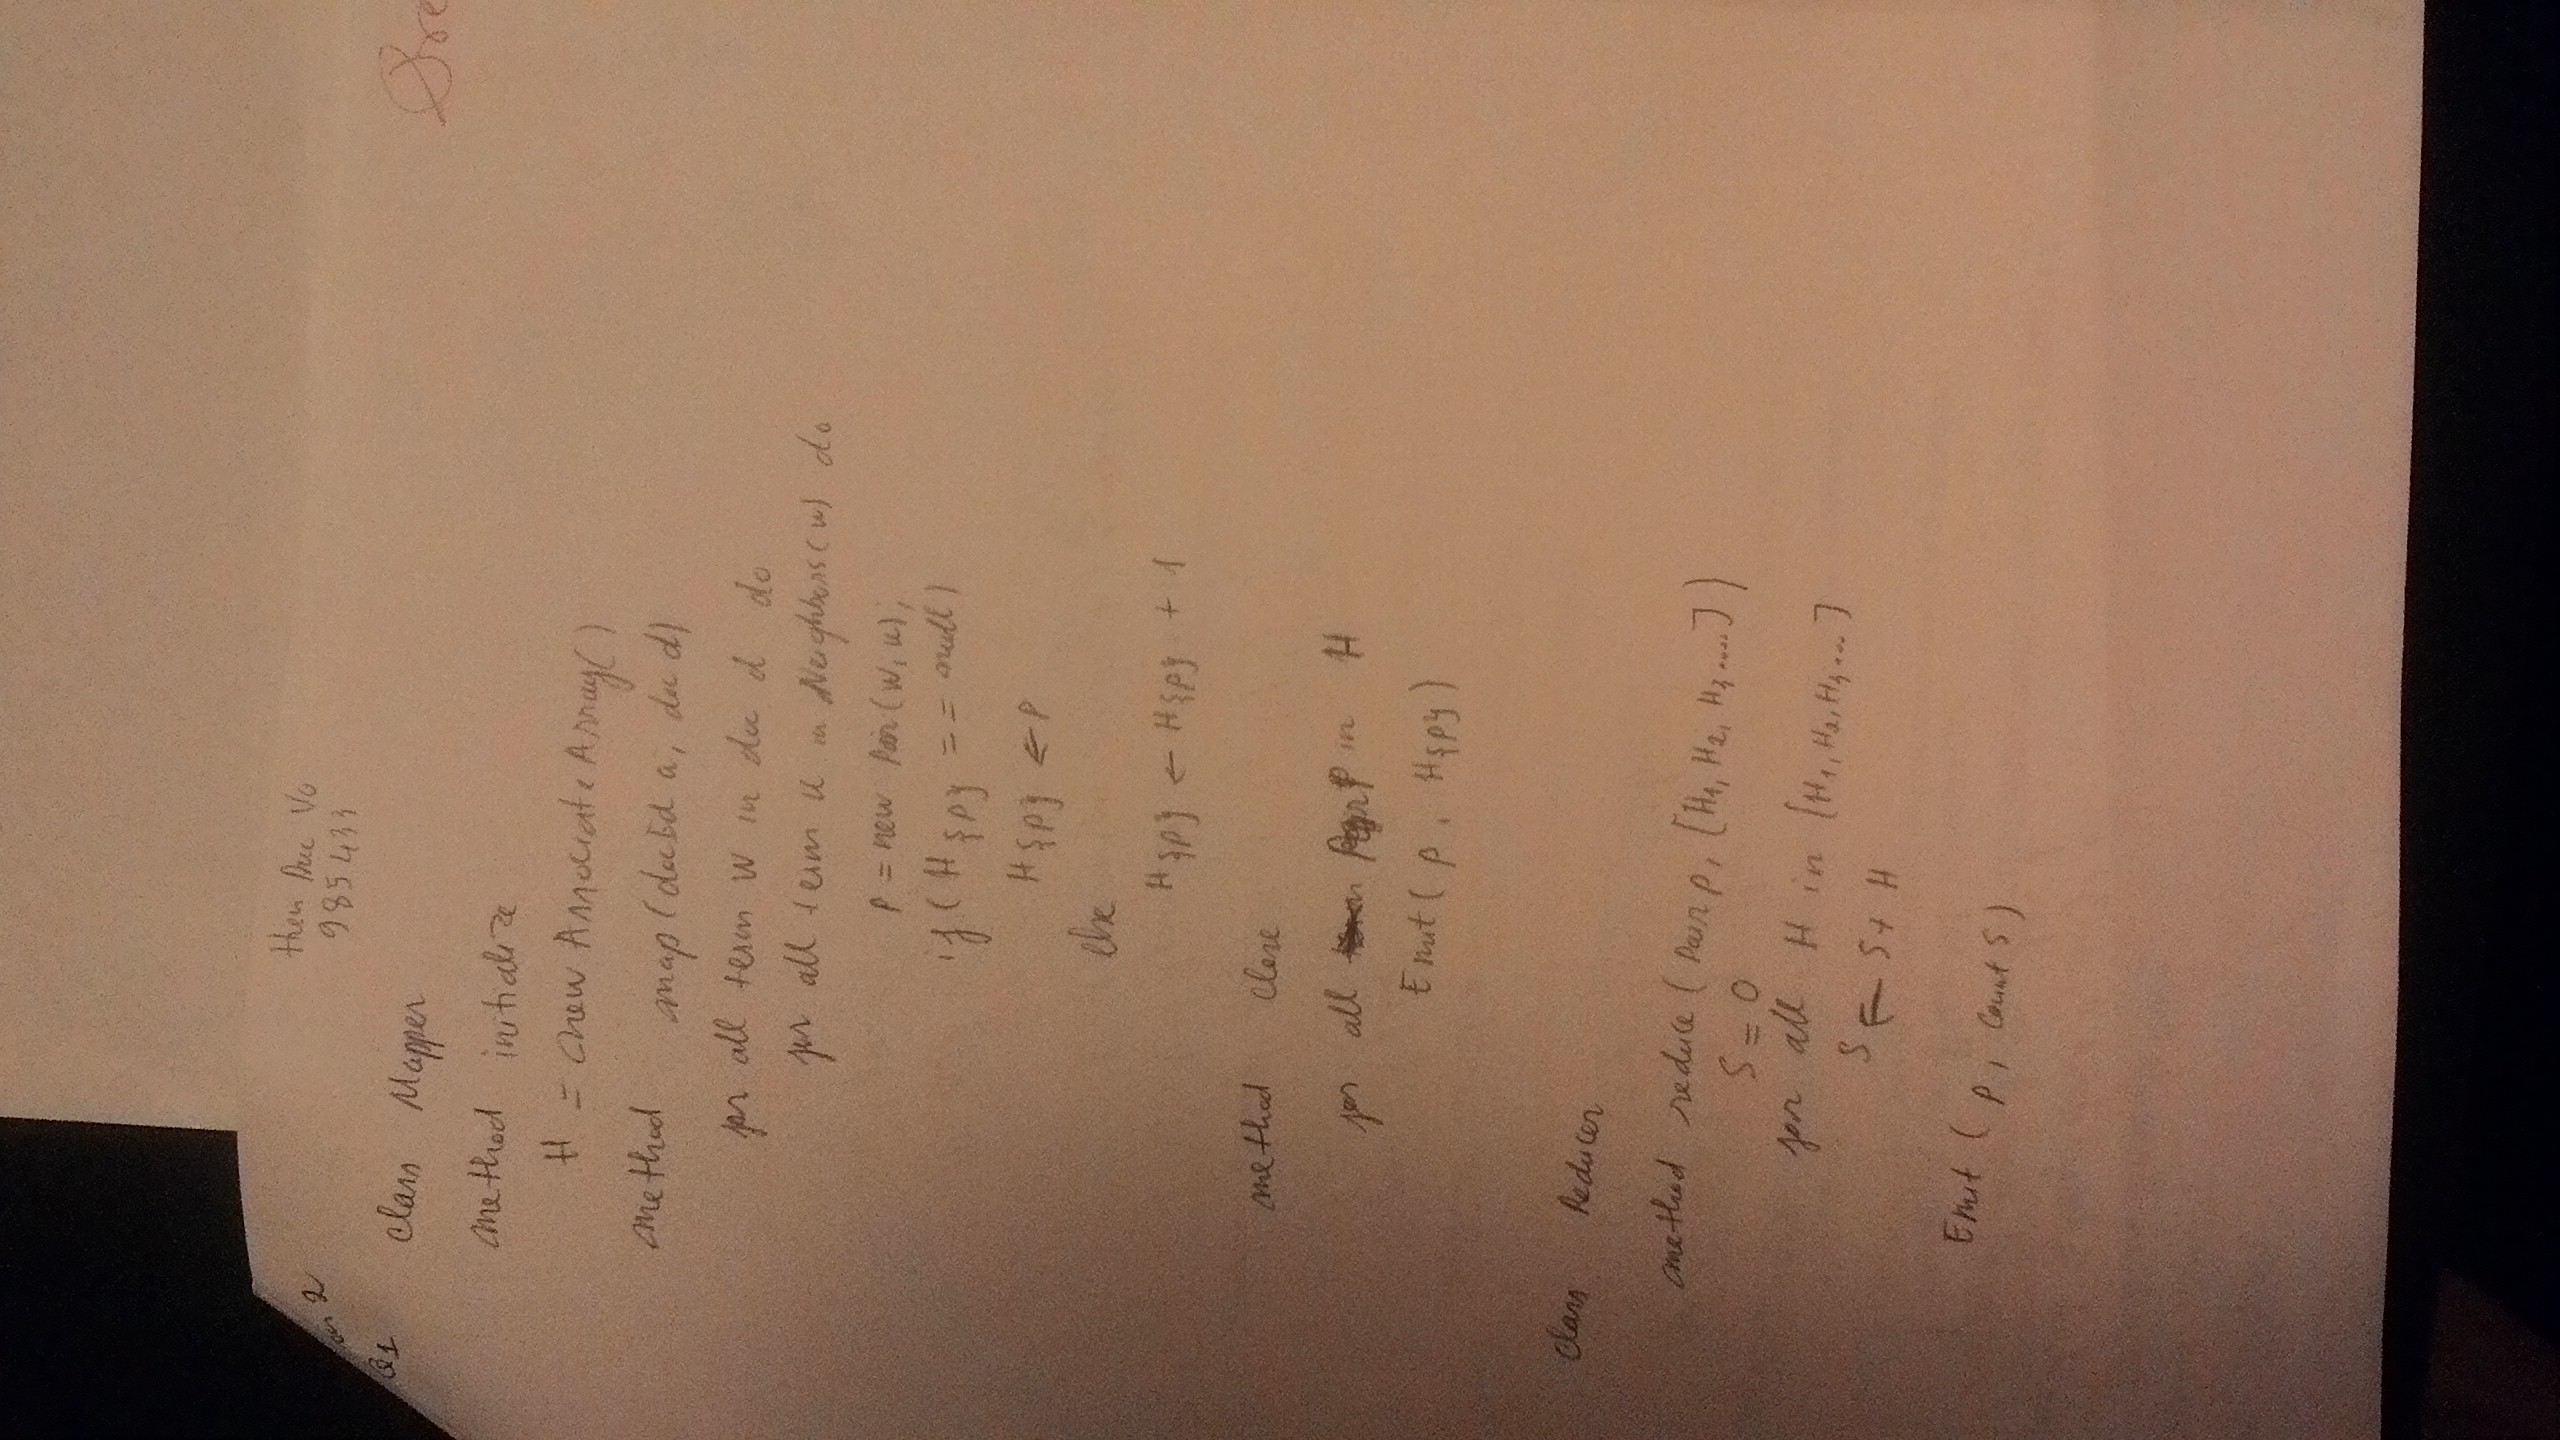 then Duc Vo
2
985433
Q1
class Mapper
method initialize
H = new AssociateArray()
method map(docId a, doc d)
for all term w in doc d do
for all term u in Neighbors(w) do
P = new Pair(w, u);
if(H{p} == null)
H{p} ← P
else
H{p} ← H{p} + 1
method close
for all Pair P in H
Emit(p, H{p})
class Reducer
method reduce(Pair p, [H1, H2, H3....])
S = 0
for all H in [H1, H2, H3...]
S ← S + H
Emit(p, count S)